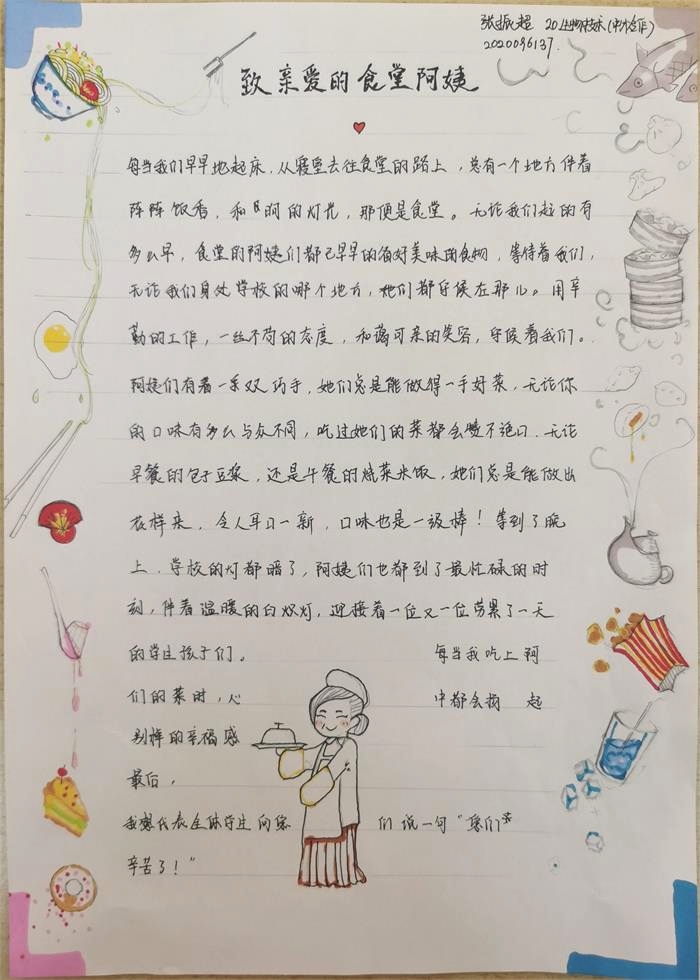 张振超 20生物技术(中外合作)
2020096137.
致亲爱的食堂阿姨
每当我们早早地起床,从寝室去往食堂的路上,总有一个地方伴着
阵阵饭香,和 的灯光,那便是食堂。无论我们起的有
多么早,食堂的阿姨们都已早早的备好美味的食物,等待着我们,
无论我们身处学校的哪个地方,她们都守候在那儿。用辛
勤的工作,一丝不苟的态度,和蔼可亲的笑容,守候着我们。
阿姨们有着一条双巧手,她们总是能做得一手好菜,无论你
的口味有多么与众不同,吃过她们的菜都会赞不绝口.无论
早餐的包子豆浆,还是午餐的烧菜米饭,她们总是能做出
花样来,令人耳口一新,口味也是一级棒!等到了晚
上,学校的灯都暗了,阿姨们也都到了最忙碌的时
刻,伴着温暖的白炽灯,迎接着一位又一位劳累了一天
的学生孩子们。 每当我吃上阿
们的菜时,心 中都会 起
别样的幸福感
最后,
我想代表全体学生向您 们说一句“您们
辛苦了!”